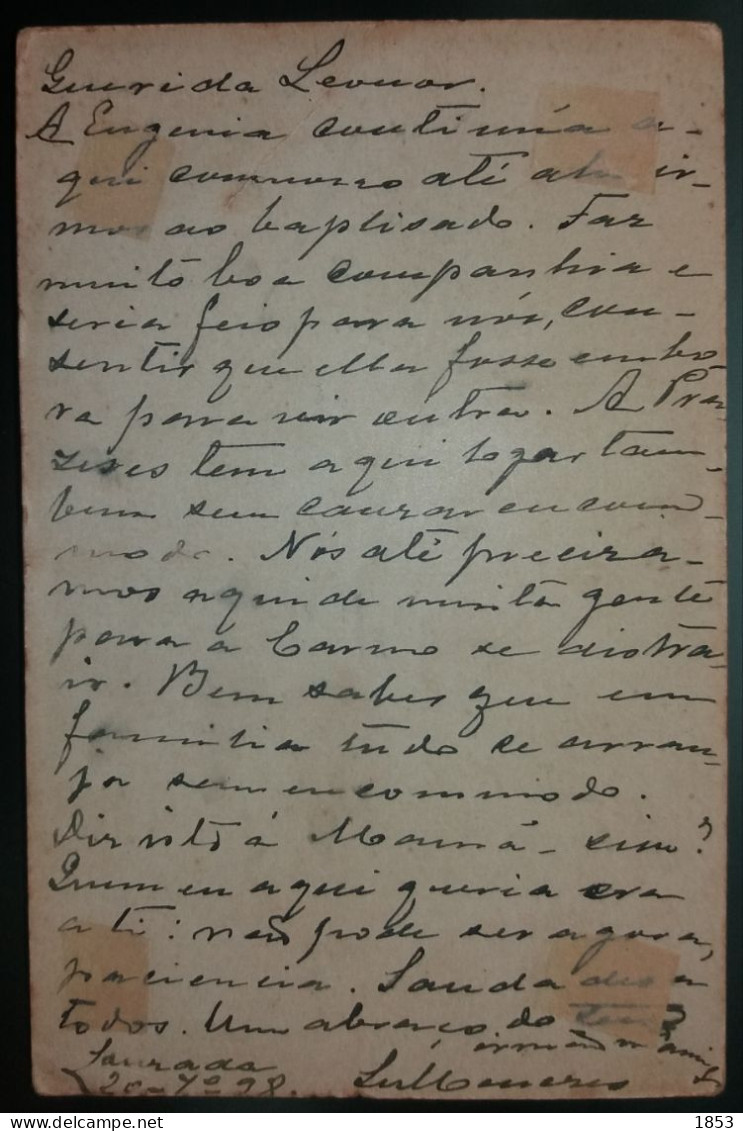 Querida Leonor.
A Eugenia continúa a-
qui comnosco até ir-
mos ao baptisado. Faz
muito boa companhia e
seria feio para nós, con-
sentir que ella fosse embo
ra para vir outra. A Pra-
zeres tem aqui logar tam-
bem sem causar encom-
modo. Nós até precisa-
mos aqui de muita gente
para a Carmo se distra-
ir. Bem sabes que em
familia tudo se arran-
ja sem encommodo.
Diz isto á Mamã - sim?
Quem eu aqui queria era
a ti: não pode ser agora,
paciencia. Saudades a
todos. Um abraço do teu
irmão m. amigo
20-7º-98.
1853